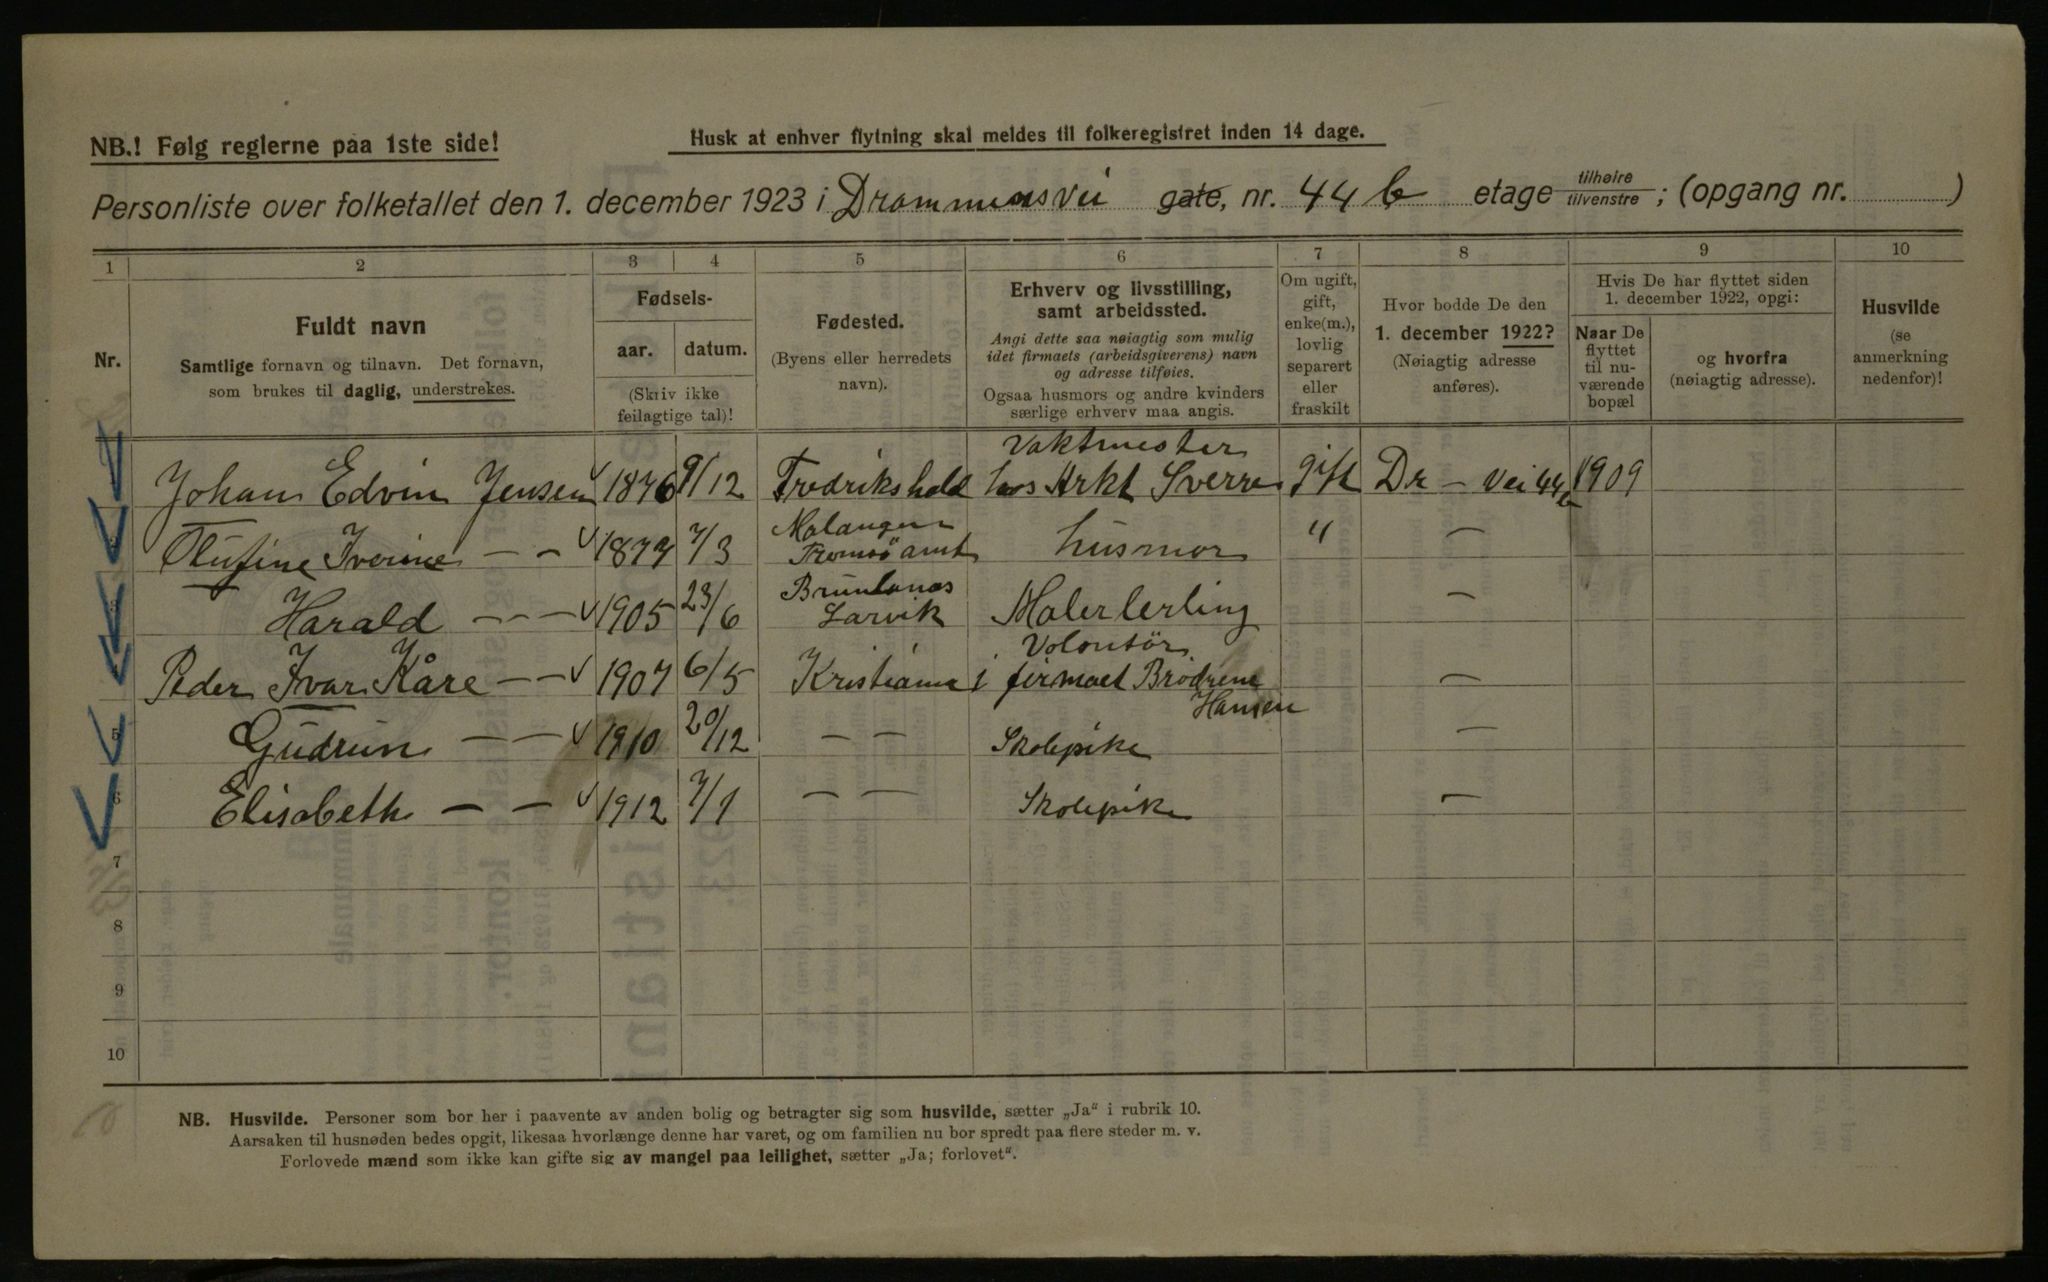 NB.! Følg reglerne paa 1ste side!
Husk at enhver flytning skal meldes til folkeregistret inden 14 dage.
Personliste over folketallet den 1. december 1923 i Drammensvei gate, nr. 44 b etage tilhøire tilvenstre ; (opgang nr. )
1 2 3 4 5 6 7 8 9 10
Nr.
Fuldt navn
Samtlige fornavn og tilnavn. Det fornavn,
som brukes til daglig, understrekes.
Fødsels-
aar. datum.
(Skriv ikke
feilagtige tal)!
Fødested.
(Byens eller herredets
navn).
Erhverv og livsstilling,
samt arbeidssted.
Angi dette saa nøiagtig som mulig
idet firmaets (arbeidsgiverens) navn
og adresse tilføies.
Ogsaa husmors og andre kvinders
særlige erhverv maa angis.
Om ugift,
gift,
enke(m.),
lovlig
separert
eller
fraskilt
Hvor bodde De den
1. december 1922?
(Nøiagtig adresse
anføres).
Hvis De har flyttet siden
1. december 1922, opgi:
Naar De
flyttet
til nu-
værende
bopæl
og hvorfra
(nøiagtig adresse).
Husvilde
(se
anmerkning
nedenfor)!
Vaktmester
Johan Edvin Jensen 1876 9/12 Fredrikshald hos Arkt Sverre gift Dr – Vei 44b 1909
Malangen
Olufine Iverine – – 1877 7/3 Tromsö amt husmor " –
Brunlanes
Harald – – – 1905 23/6 Larvik Malerlerling –
Volontör
Peder Ivar Kåre – – 1907 6/5 Kristiania i firmaet Brödrene –
Hansen
5 Gudrun – – 1910 20/12 – – Skolepike –
6 Elisabeth – – 1912 7/1 – – Skolepike –
7
8
9
10
NB. Husvilde. Personer som bor her i paavente av anden bolig og betragter sig som husvilde, sætter „Ja“ i rubrik 10.
Aarsaken til husnøden bedes opgit, likesaa hvorlænge denne har varet, og om familien nu bor spredt paa flere steder m. v.
Forlovede mænd som ikke kan gifte sig av mangel paa leilighet, sætter „Ja; forlovet“.